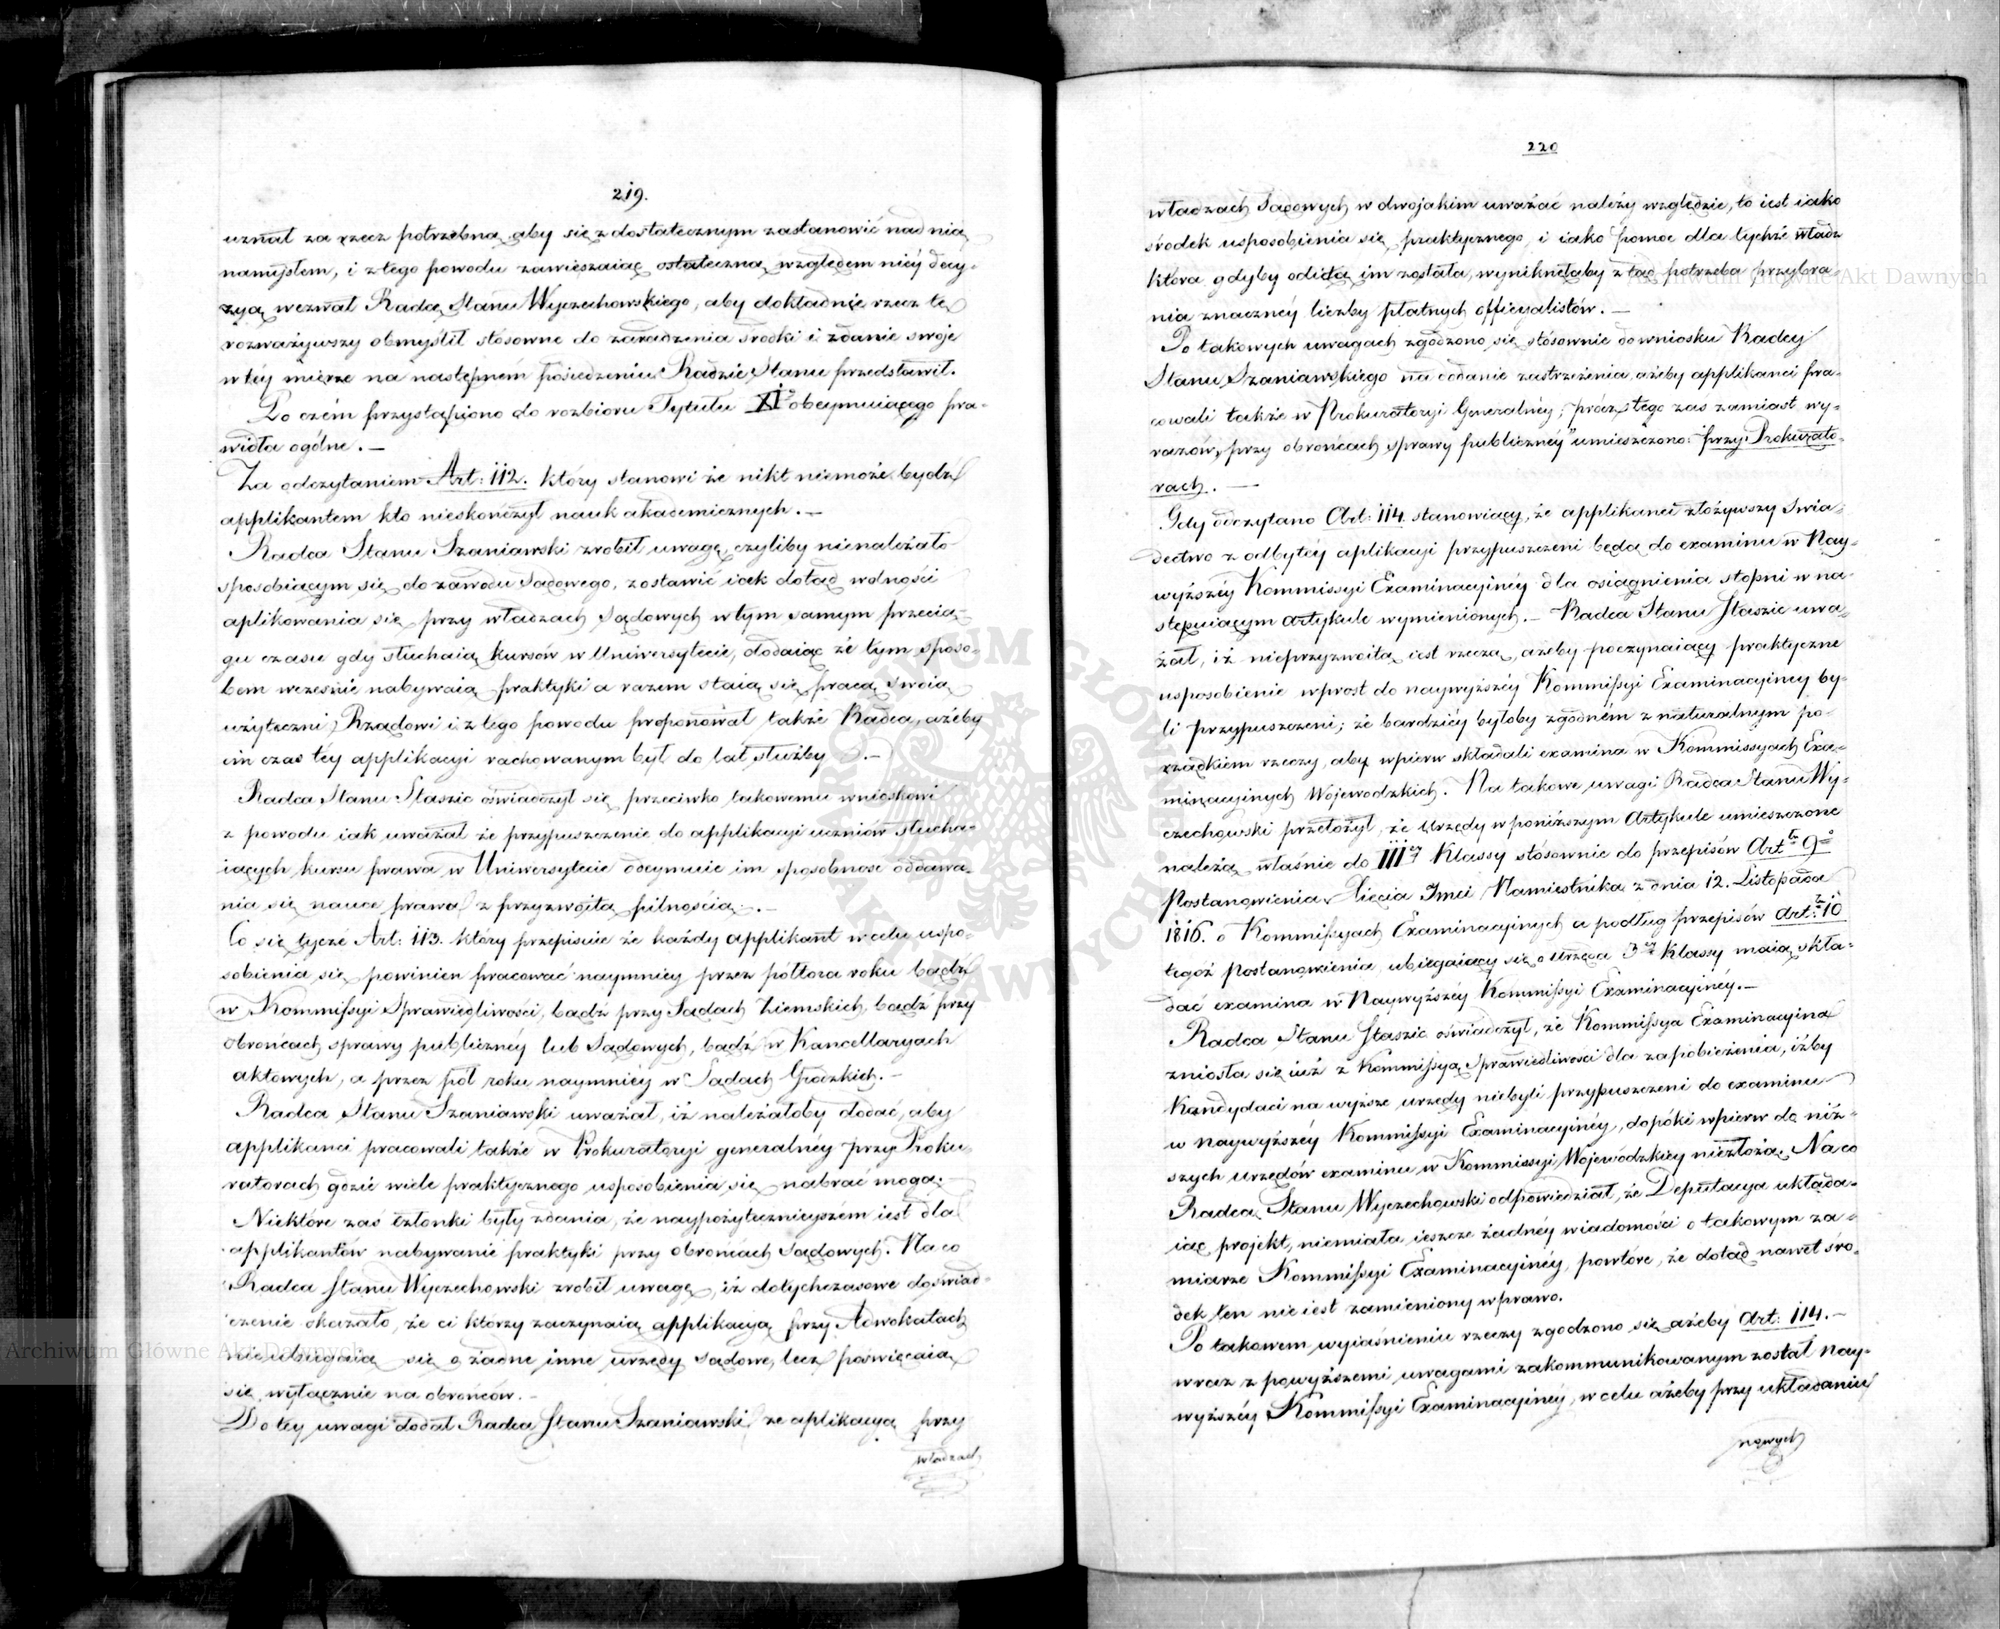 219.
uznał za rzecz potrzebną aby się z dostatecznym zastanowić nad nią
namysłem, i z tego powodu zawieszaiąc ostateczną względem niey decy-
zyą wezwał Radcę Stanu Wyczechowskiego, aby dokładnie rzecz tę
rozważywszy obmyślił stósowne do zaradzenia środki i zdanie swoje
w téy mierze na następném posiedzeniu Radzie Stanu przedstawił.
Po czém przystąpiono do rozbioru Tytułu XIgo obeymuiącego pra-
widła ogólne. —
Za odczytaniem Art: 112. który stanowi że nikt niemoże bydź
applikantem kto nieskończył nauk akademicznych. —
Radca Stanu Szaniawski zrobił uwagę, czyliby nienależało
sposobiącym się do zawodu Sądowego, zostawić iak dotąd wolności
aplikowania się przy władzach Sądowych w tym samym przecią-
gu czasu gdy słuchaią kursów w Uniwersytecie, dodaiąc że tym sposo-
bem wcześnie nabywaią praktyki a razem staią się pracą swoią
użyteczni Rządowi i z tego powodu proponował także Radca, ażeby
im czas téy applikacyi rachowanym był do lat służby. —
Radca Stanu Staszic oświadczył się przeciwko takowemu wnioskowi
z powodu iak uważał że przypuszczenie do applikacyi uczniów słucha-
iących kursu prawa w Uniwersytecie odeymuie im sposobność oddawa-
nia się nauce prawa z przyzwoitą pilnością. —
Co się tycze Art: 113. który przepisuie że każdy applikant w celu uspo-
sobienia się powinien pracować naymniey przez półtora roku bądź
w Kommissyi Sprawiedliwości, bądź przy Sądach Ziemskich, bądź przy
obrońcach sprawy publicznéy lub Sądowych, bądź w Kancellaryach
aktowych, a przez pół roku naymniéy w Sądach Grodzkich. —
Radca Stanu Szaniawski uważał, iż należałoby dodać, aby
applikanci pracowali także w Prokuratoryi generalnéy przy Proku-
ratorach gdzie wiele praktycznego usposobienia się nabrać mogą. —
Niektóre zaś członki były zdania, że naypożytecznieyszém iest dla
applikantów nabywanie praktyki przy obrońcach Sądowych. Na co
Radca Stanu Wyczechowski zrobił uwagę, iż dotychczasowe doświad-
czenie okazało, że ci którzy zaczynaią applikacyą przy Adwokatach
nieubiegaią się o żadne inne urzędy Sądowe, lecz poświęcaią
się wyłącznie na obrońców. —
Do téy uwagi dodał Radca Stanu Szaniawski że aplikacya przy
władzach
220
władzach Sądowych w dwojakim uważać należy względzie, to iest iako
środek usposobienia się praktycznego, i iako pomoc dla tychże władz
która gdyby odiętą im została, wyniknęłaby ztąd potrzeba przybra-
nia znacznéy liczby płatnych officyalistów. —
Po takowych uwagach zgodzono się stósownie do wniosku Radcy
Stanu Szaniawskiego na dodanie zastrzeżenia, ażeby applikanci pra-
cowali także w Prokuratoryi Generalnéy; prócz tego zaś zamiast wy-
razów „przy obrońcach sprawy publicznéy" umieszczono: "przy Prokurato-
rach. —
Gdy odczytano Art: 114. stanowiący, że applikanci złożywszy świa-
dectwo z odbytéy aplikacyi przypuszczeni będą do examinu w Nay-
wyższéy Kommissyi Examinacyinéy dla osiągnienia stopni w na-
stępuiącym Artykule wymienionych. — Radca Stanu Staszic uwa-
żał, iż nieprzyzwoitą iest rzeczą, ażeby poczynaiący praktyczne
usposobienie wprost do naywyższéy Kommissyi Examinacyiney by-
li przypuszczeni; że bardziéy byłoby zgodném z naturalnym po-
rządkiem rzeczy, aby wpierw składali examina w Kommissyach Exa-
minacyinych Wojewodzkich. Na takowe uwagi Radca Stanu Wy-
czechowski przełożył, że Urzędy w poniższym Artykule umieszczone
należą właśnie do IIIéy Klassy stósownie do przepisów Artłu 9o
Postanowienia Xięcia Jmci Namiestnika z dnia 12. Listopada
1816. o Kommissyach Examinacyinych a podług przepisów Artłu 10
tegóż Postanowienia ubiegaiący się o Urzęda 3éy Klassy maią skła-
dać examina w Naywyższéy Kommissyi Examinacyinéy. —
Radca Stanu Staszic oświadczył, że Kommissya Examinacyina
zniosła się iuż z Kommissyą Sprawiedliwości dla zapobieżenia, iżby
Kandydaci na wyższe urzędy niebyli przypuszczeni do examinu
w naywyższéy Kommissyi Examinacyinéy, dopóki wpierw do niż-
szych urzędów examinu w Kommissyi Wojewódzkiey niezłożą. Na co
Radca Stanu Wyczechowski odpowiedział, że Deputacya układa-
iąc projekt, niemiała ieszcze żadnéy wiadomości o takowym za-
miarze Kommissyi Examinacyinéy, powtóre, że dotąd nawet śro-
dek ten nie iest zamieniony w prawo.
Po takowem wyiaśnieniu rzeczy zgodzono się ażeby Art: 114. —
wraz z powyższemi uwagami zakommunikowanym został Nay-
wyższéy Kommissyi Examinacyinéy, w celu ażeby przy układaniu
nowych
Archiwum Główne Akt Dawnych
Archiwum Główne Akt Dawnych
ARCHIWUM GŁÓWNE AKT DAWNYCH